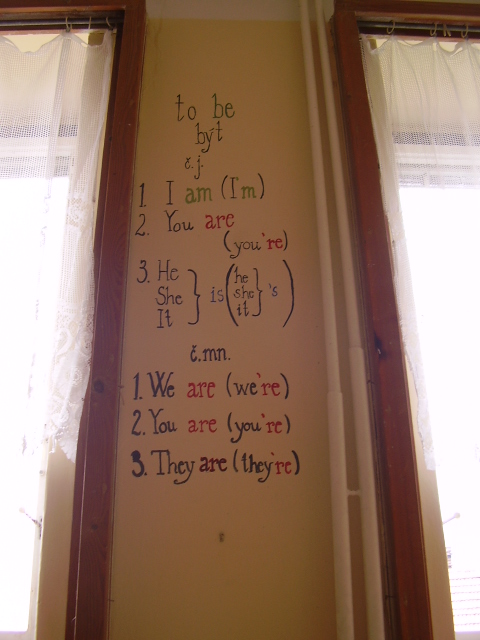 to be
být
č.j.
1. I am (I'm)
2. You are
(you're)
3. He
She
It
} is (he
she
it
} 's)
č.mn.
1. We are (we're)
2. You are (you're)
3. They are (they're)